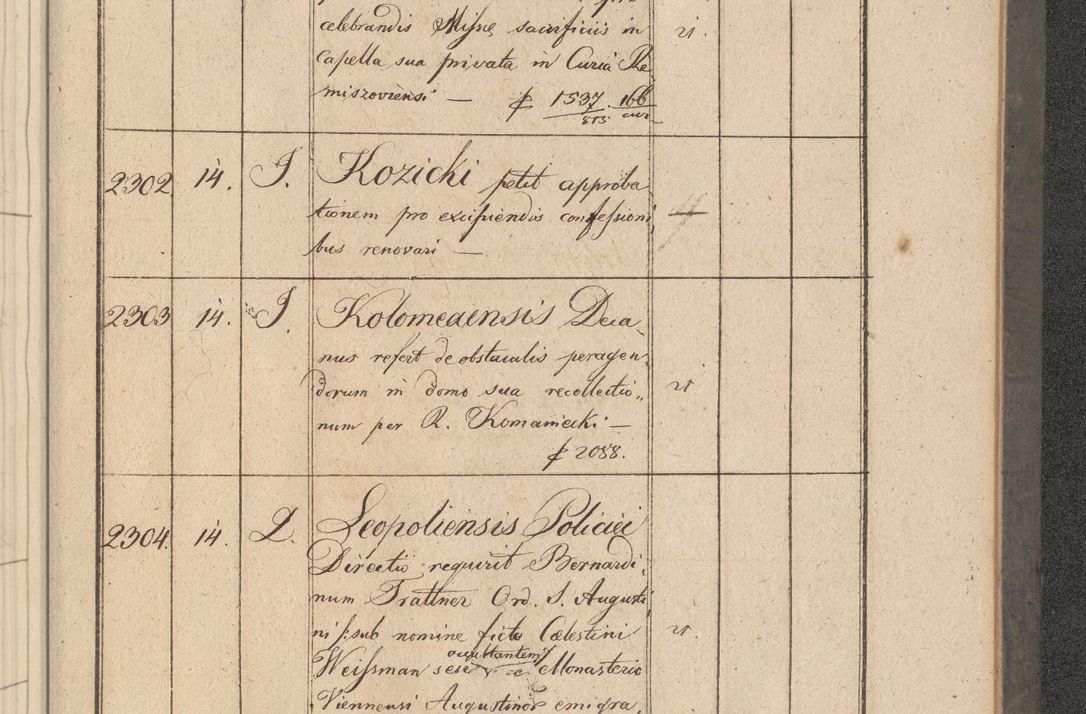 celebrandis Missæ sacrificiis in
Capella sua privata in Curia Re
miszoviensi — 1537. 166
513 cur
2302. 14. J. Kozicki petit approba
tionem pro excipiendis confessioni
bus renovari —
2303 14. J. Kolomeaensis Deca
nus refert de obstaculis peragen
dorum in domo sua recollectio„
num per R. Komaniecki —
2088.
2304. 14. L. Leopoliensis Policiei
Directio requirit Bernardi
num Trattner Ord. S. Augusti
ni /:sub nomine ficto Cælestini
occultantem
Weissman sese e Monasterio
Viennensi Augustinor emigra